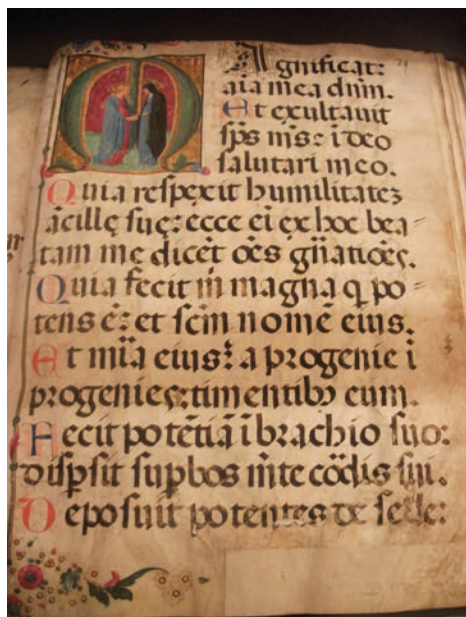 M Agnificat:
aīa mea dñm.
Et exultauit
sp̄s m̄s: ī deo
salutari meo.
Quia respexit humilitatez
ācillę suę: ecce eī ex hoc bea=
tam me dicēt oēs gñatiōēs.
Quia fecit m̄ magna q̄ po=
tens ē: et scm̄ nomē eius.
Et mīa eius: a progenie ī
progenies: timentibꝰ eum.
Fecit potētiā ī brachio suo:
dispsit supbos mēte cōdis sui.
Deposuit potentes de sede: